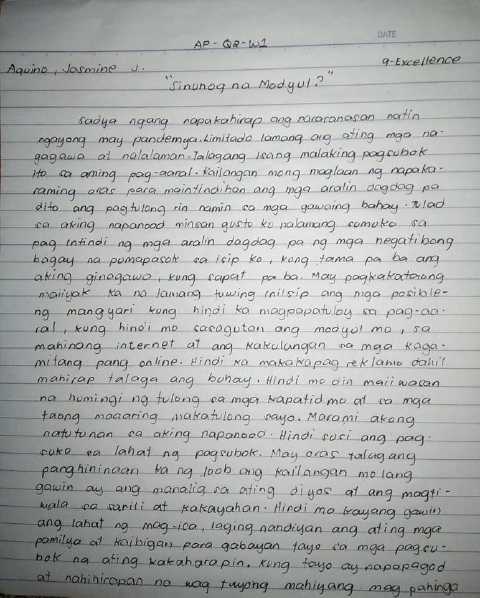 AP-Q2-W1
DATE
Aquino, Jasmine J.
9-Excellence
"Sinunog na Modyul?"
Sadya ngang napakahirap ang nararanasan natin
ngayong may pandemya. Limitado lamang ang ating mga na-
gagawa at nalalaman. Talagang isang malaking pagsubok
ito sa aming pag-aaral. Kailangan mong maglaan ng napaka-
raming oras para maintindihan ang mga aralin dagdag pa
dito ang pagtulong rin namin sa mga gawaing bahay. Tulad
sa aking napanood minsan gusto ko nalamang sumuko sa
pag intindi ng mga aralin dagdag pa ng mga negatibong
bagay na pumapasok sa isip ko, kung tama pa ba ang
aking ginagawa, kung sapat pa ba. May pagkakataong
maiiyak ka na lamang tuwing iniisip ang mga posible-
ng mangyari kung hindi ka magpapatuloy sa pag-aa-
ral, kung hindi mo sasagutan ang modyul mo, sa
mahinang internet at ang kakulungan sa mga kaga-
mitang pang online. Hindi ka makakapag reklamo dahil
mahirap talaga ang buhay. Hindi mo din maiiwasan
na humingi ng tulong sa mga kapatid mo at sa mga
taong maaaring makatulong sayo. Marami akong
natutunan sa aking napanood. Hindi susi ang pag-
suko sa lahat ng pagsubok. May oras talagang
panghihinaan ka ng loob ang kailangan mo lang
gawin ay ang manalig sa ating diyos at ang magti-
wala sa sarili at kakayahan. Hindi mo kayang gawin
ang lahat ng mag-isa, laging nandiyan ang ating mga
pamilya at kaibigan para gabayan tayo sa mga pagsu-
bok na ating kakaharapin. Kung tayo ay napapagod
at nahihirapan na wag tayong mahiyang mag pahinga